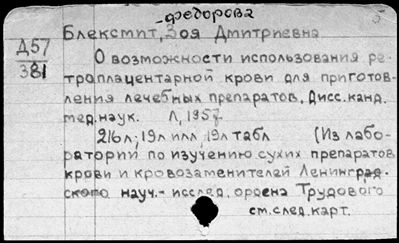 -федорова
5
Блекстит, Зоя Дмитриевна
Д57
381
О возможности использования ре-
троплацентарной крови для приготов-
ления лечебных препаратов. Дисс. канд.
мед. наук. Л, 1957.
216л; 19л илл, 19л табл (Из лабо-
ратории по изучению сухих препаратов
крови и кровозаменителей Ленинград-
ского науч.- исслед. ордена Трудового
см. след. карт.